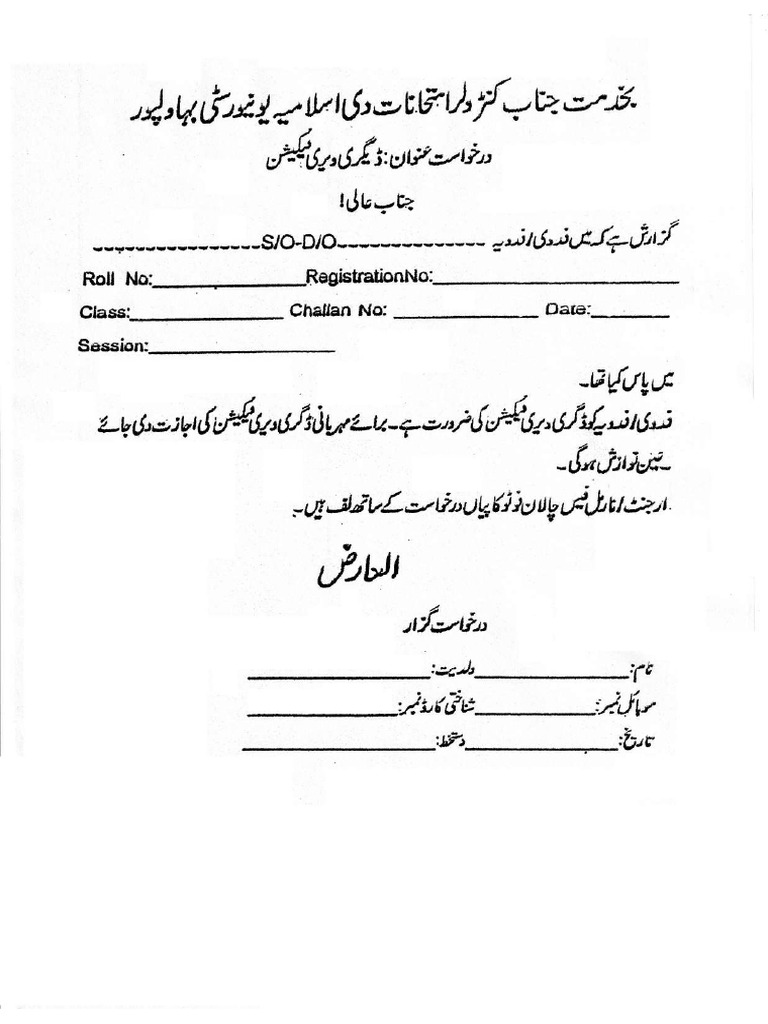 بخدمت جناب کنٹرولر امتحانات دی اسلامیہ یونیورسٹی بہاولپور
درخواست عنوان: ڈیگری ویری فیکیشن
جناب عالی!
گزارش ہے کہ میں فدوی/فدویہ --------------S/O-D/O----------------
Roll No:________________RegistrationNo:__________________________
Class:________________ Challan No: _______________ Date:________
Session:____________________
میں پاس کیا تھا۔
فدوی/فدویہ کو ڈگری ویری فیکیشن کی ضرورت ہے۔ برائے مہربانی ڈگری ویری فیکیشن کی اجازت دی جائے
۔عین نوازش ہوگی۔
ارجنٹ/نارمل فیس چالان فوٹو کاپیاں درخواست کے ساتھ لف ہیں۔
العارض
درخواست گزار
نام:________________ولدیت:___________________
موبائل نمبر:_____________شناختی کارڈ نمبر:________________
تاریخ:________________دستخط:____________________